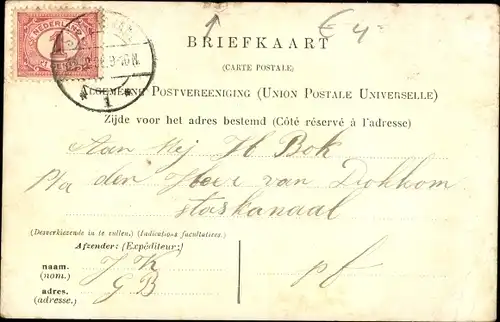 € 4-
NEDERLAND
1
1 CENT
1
BRIEFKAART
(CARTE POSTALE)
ALGEMEENE POSTVEREENIGING (UNION POSTALE UNIVERSELLE)
Zijde voor het adres bestemd (Côté réservé à l'adresse)
Aan Mej H Bok
P/a den Heer van Dokkom
Staskanaal
(Desverkiezende in te vullen.) (Indications facultatives.)
Afzender: (Expéditeur:)
naam.
(nom.)
J K
adres.
(adresse.)
G B
pf